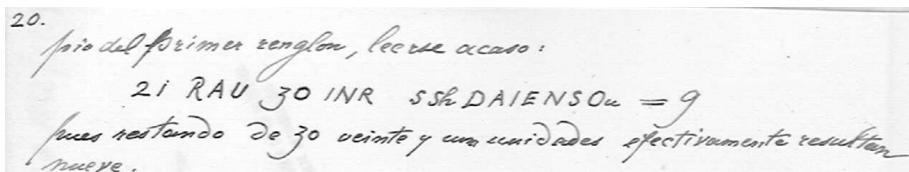 20.
pio del primer renglon, leerse acaso:
2i RAU 30 INR SShDAIENSOu = 9
pues restando de 30 veinte y un unidades efectivamente resultan
nueve.